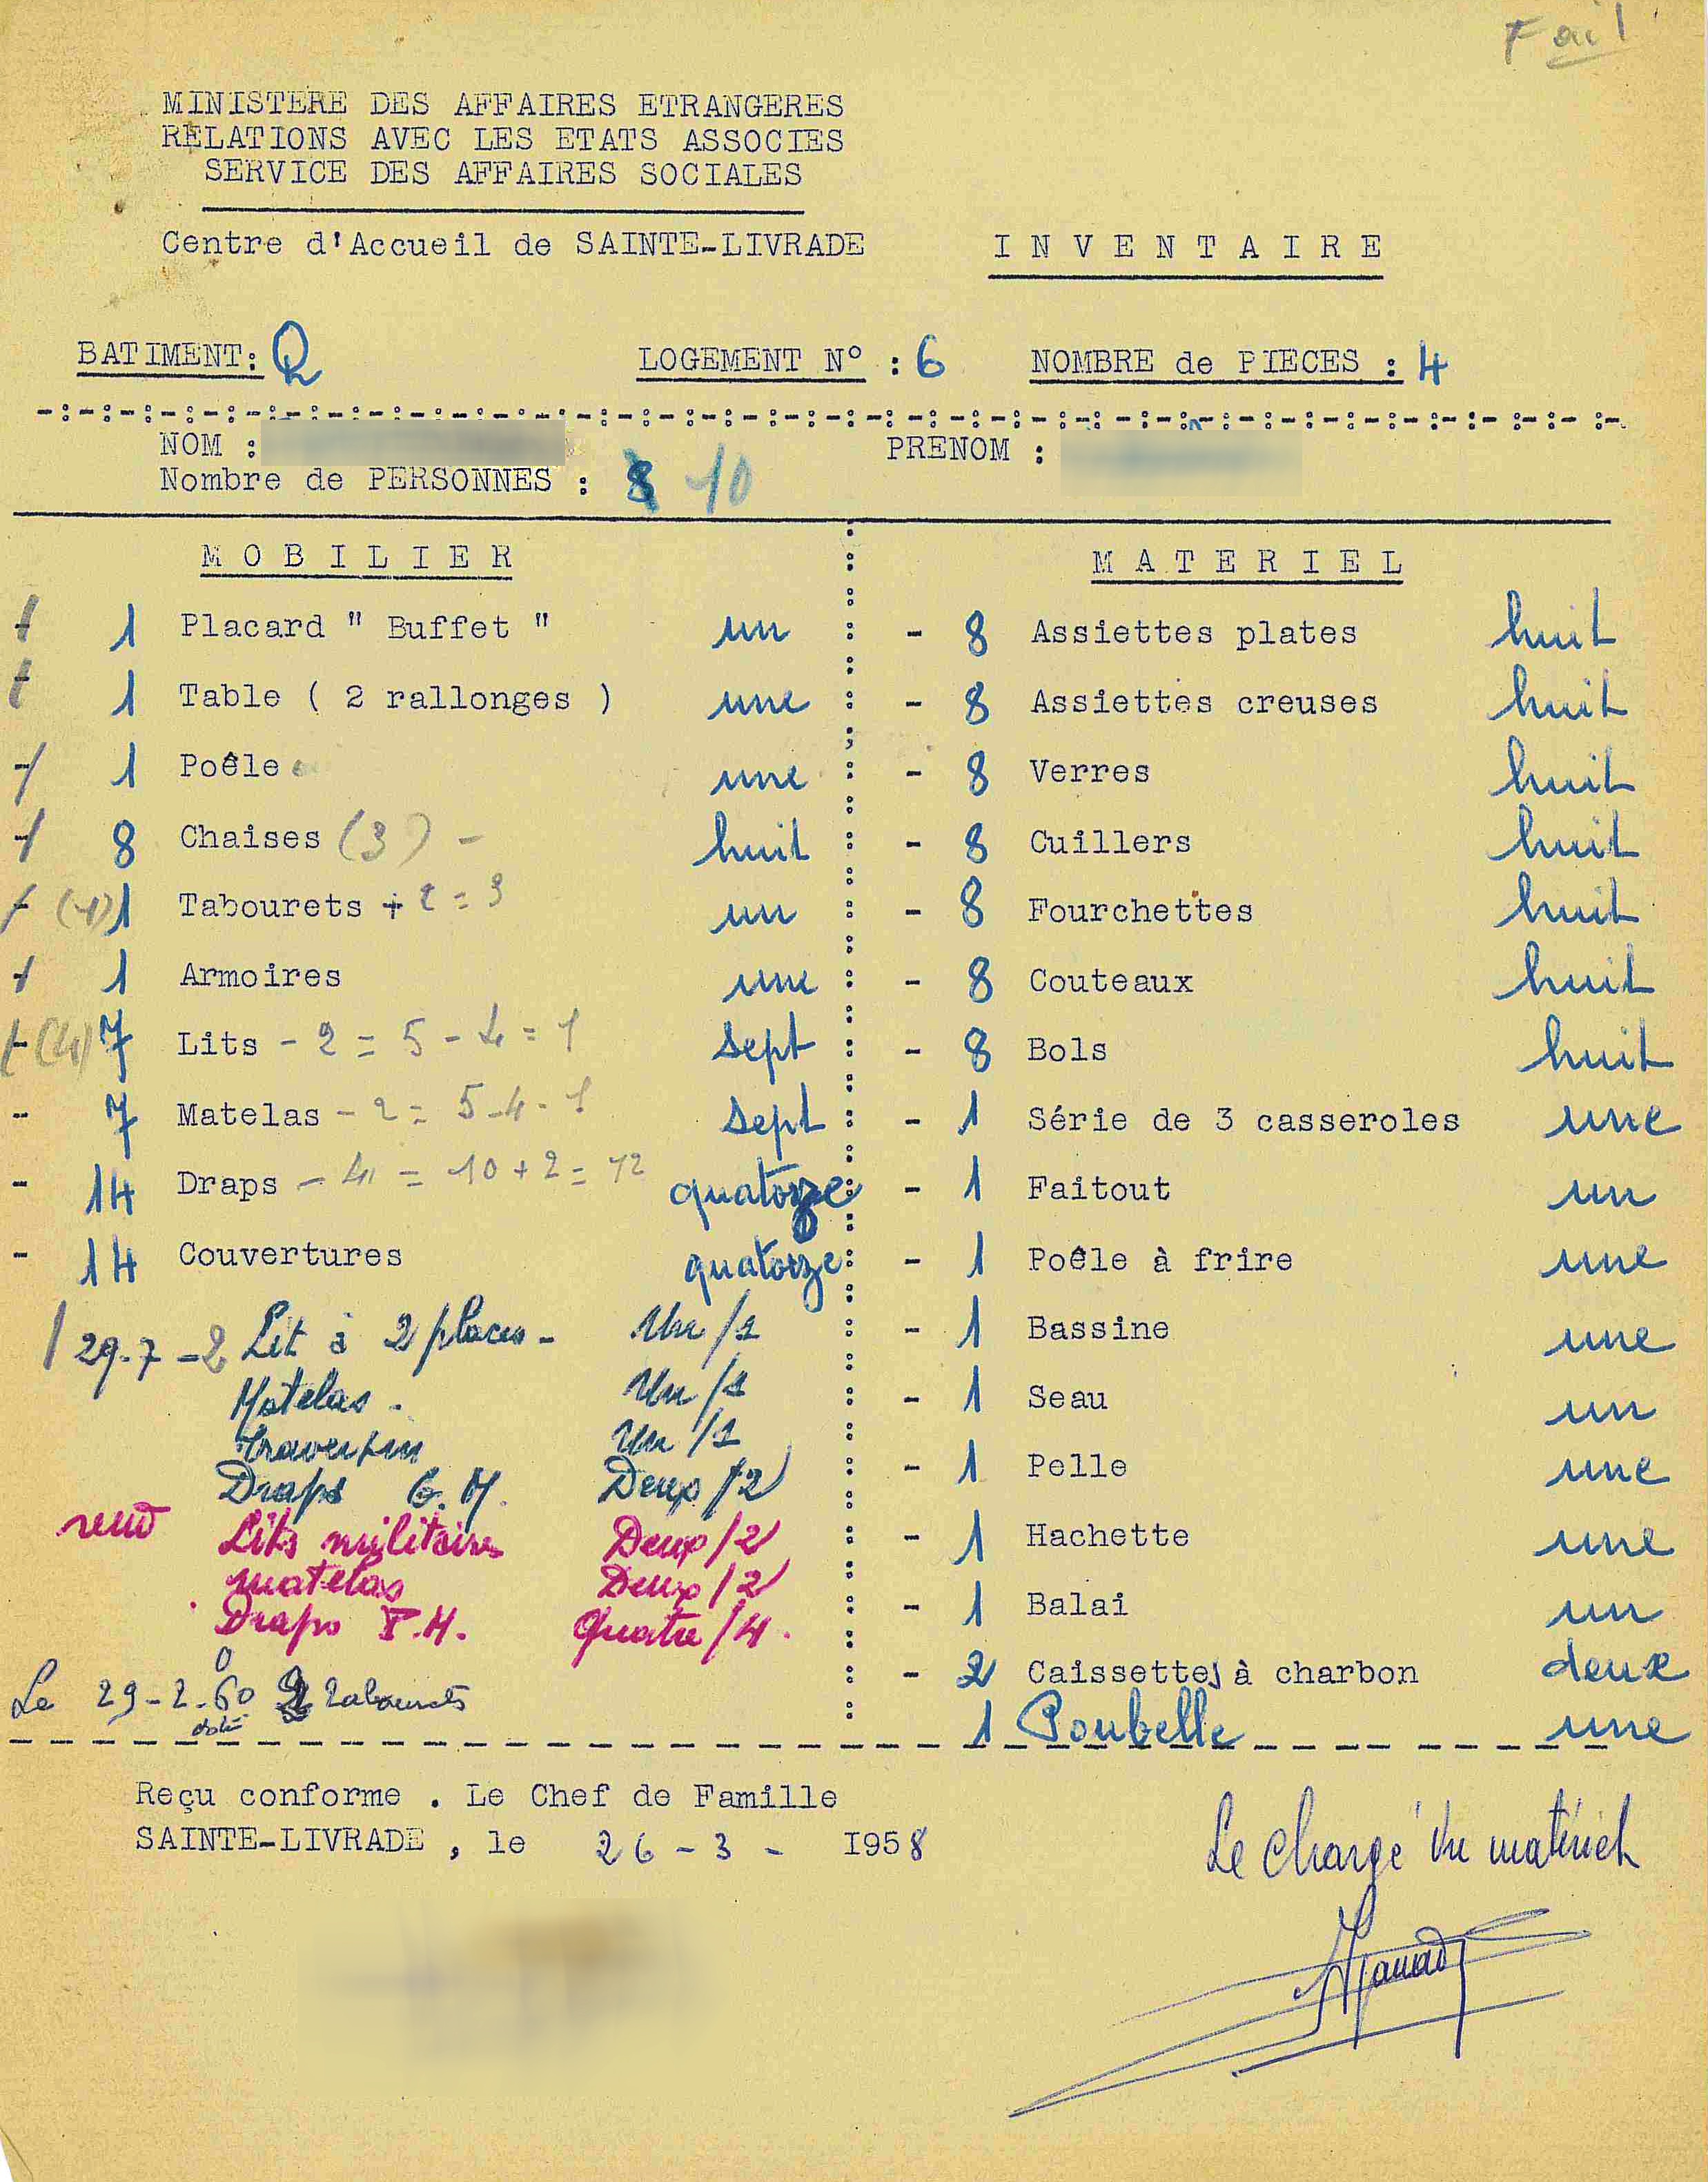 Fait
MINISTERE DES AFFAIRES ETRANGERES
RELATIONS AVEC LES ETATS ASSOCIES
SERVICE DES AFFAIRES SOCIALES
Centre d'Accueil de SAINTE-LIVRADE
I N V E N T A I R E
BATIMENT: Q LOGEMENT N° : 6 NOMBRE de PIECES : 4
NOM : PRENOM :
Nombre de PERSONNES : 8 10
M O B I L I E R
1 Placard " Buffet " un
1 Table ( 2 rallonges ) une
1 Poêle une
8 Chaises (3) - huit
(1) 1 Tabourets + 2 = 3 un
1 Armoires une
(4) 7 Lits - 2 = 5 - 4 = 1 sept
- 7 Matelas - 2 = 5 - 4 - 1 sept
- 14 Draps - 4 = 10 + 2 = 12 quatorze
- 14 Couvertures quatorze
29-7-2 Lit à 2 places - Un /1
Matelas - Un /1
Traversin Un /1
Draps G.M. Deux /2
rendu Lits militaires Deux /2
matelas Deux /2
Draps P.M. Quatre /4.
Le 29-2-60 2 Tabourets
M A T E R I E L
- 8 Assiettes plates huit
- 8 Assiettes creuses huit
- 8 Verres huit
- 8 Cuillers huit
- 8 Fourchettes huit
- 8 Couteaux huit
- 8 Bols huit
- 1 Série de 3 casseroles une
- 1 Faitout un
- 1 Poêle à frire une
- 1 Bassine une
- 1 Seau un
- 1 Pelle une
- 1 Hachette une
- 1 Balai un
- 2 Caissettes à charbon deux
1 Poubelle une
Reçu conforme . Le Chef de Famille
SAINTE-LIVRADE , le 26 - 3 - 1958
Le chargé du matériel